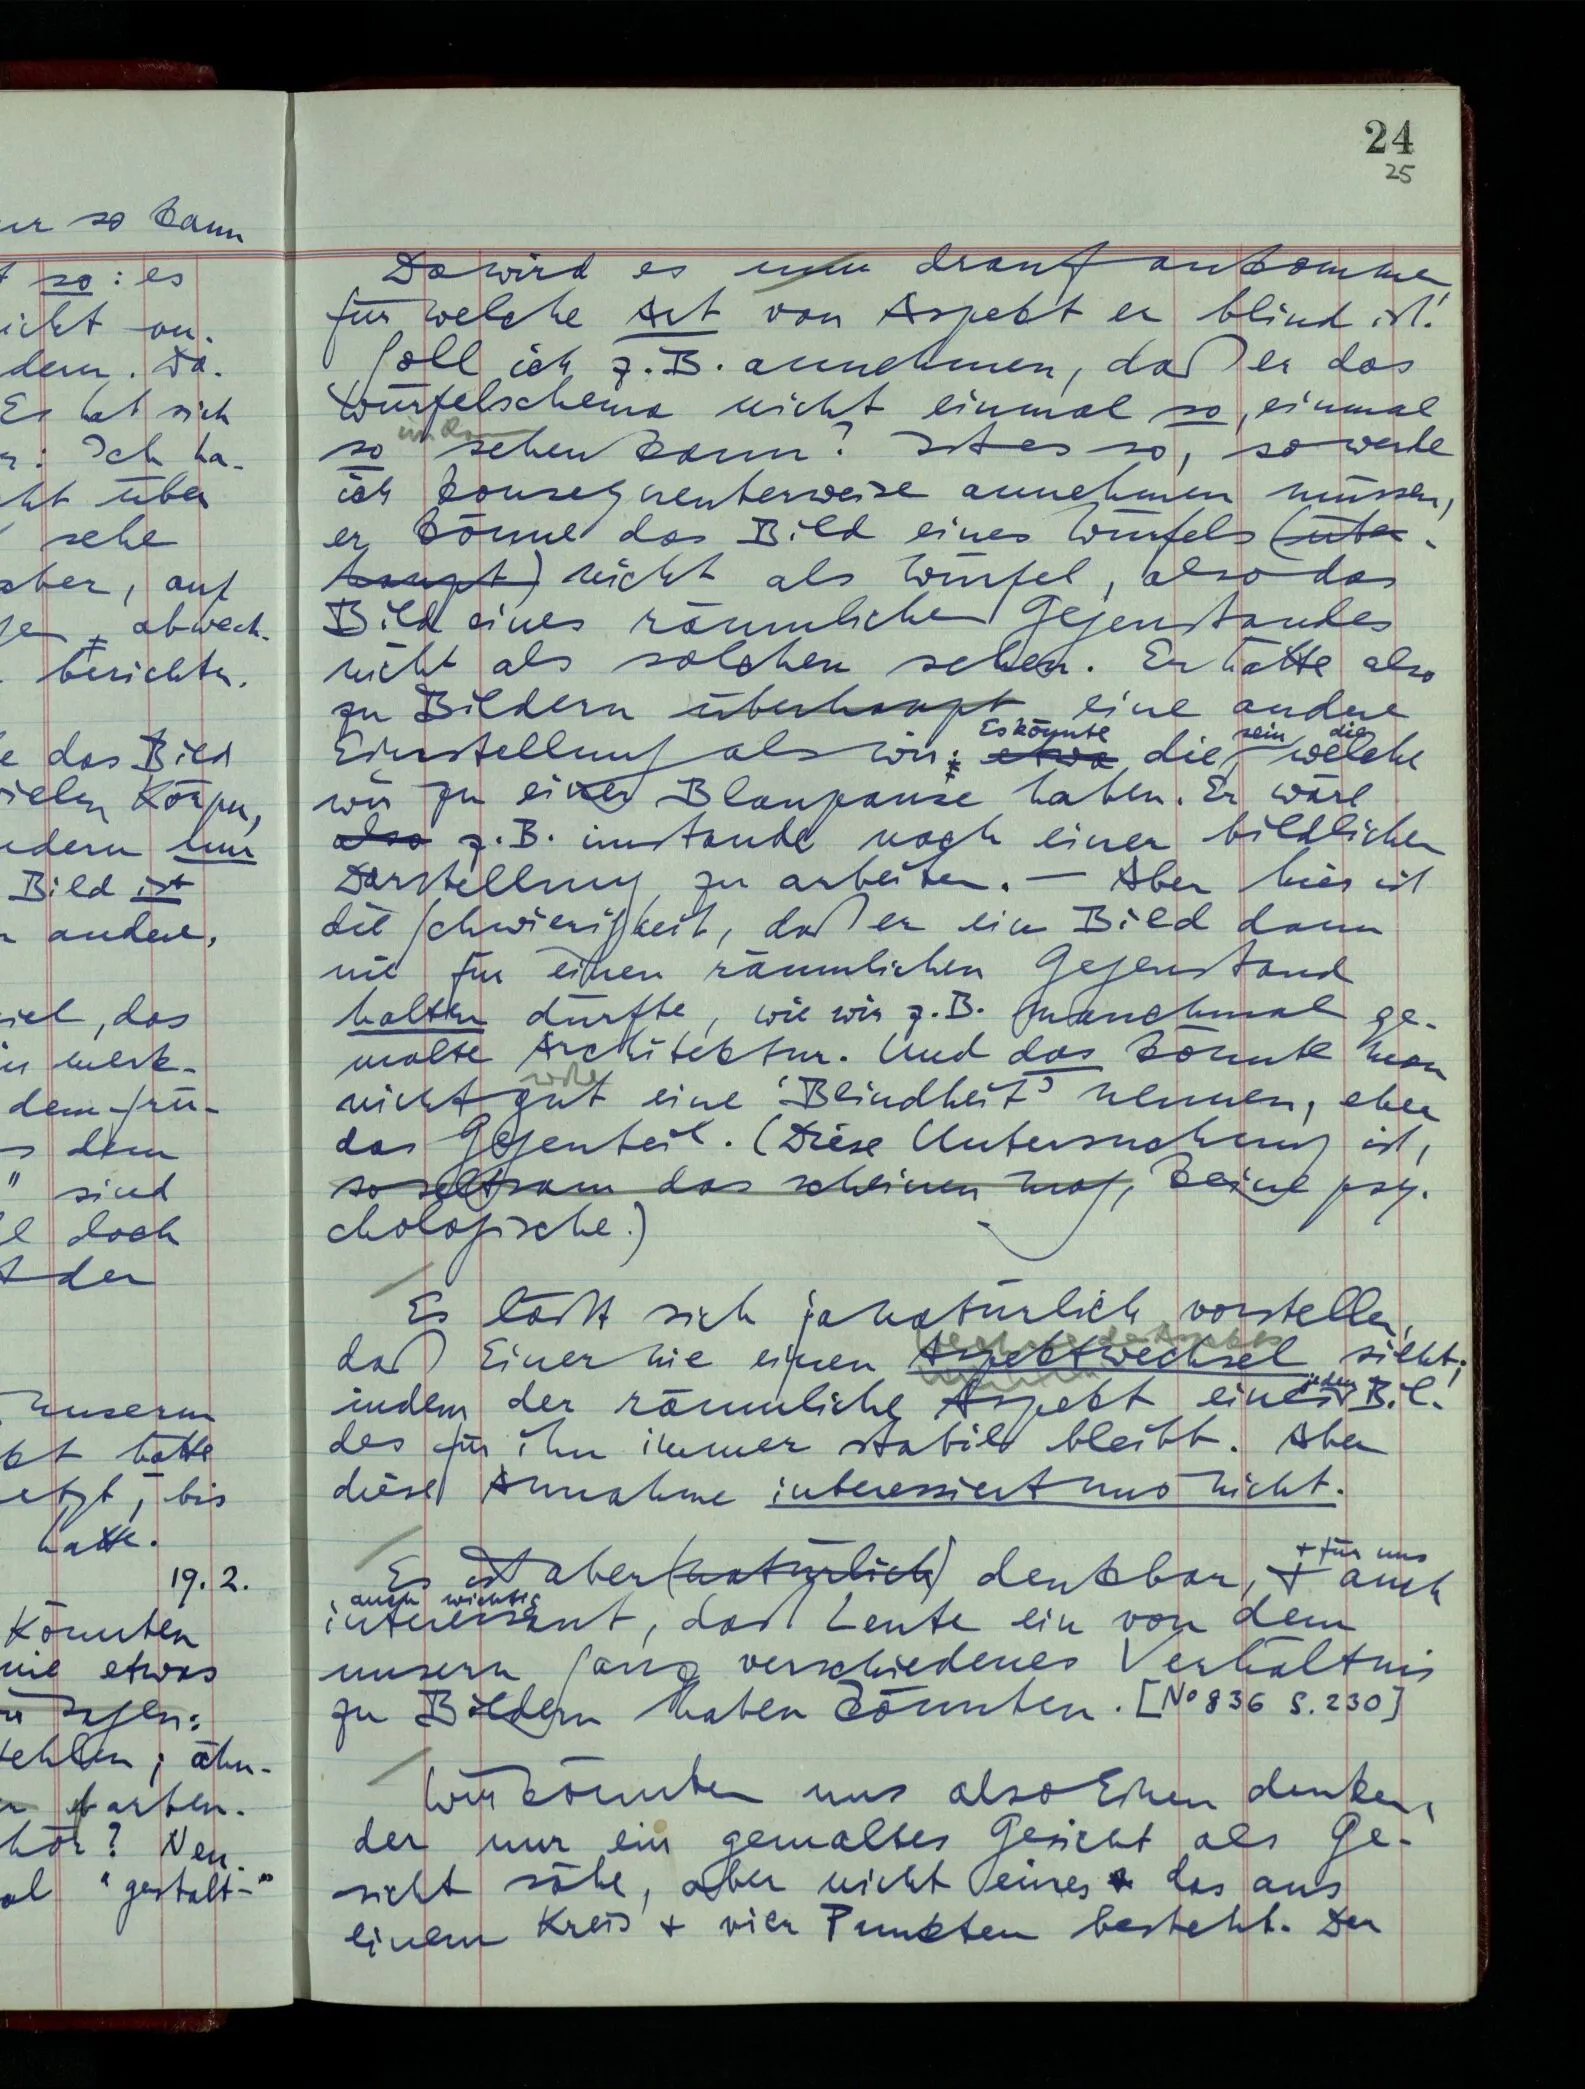 24
25
so kann
so: es
icht an-
dern. Da-
Es hat sich
Ich ha-
über
sehe
aber, auf
abwech-
berichten.
das Bild
Körper,
ndern nur
Bild ist
andere,
das
merk-
dem frü-
dem
" sind
doch
der
unserm
hätte
jetzt, bis
hatte.
19.2.
könnten
nie etwas
sagen:
fehlen; ähn-
Farben-
hör? Nen-
"gestalt-"
Da wird es nun drauf ankommen,
für welche Art von Aspekt er blind ist.
Soll ich z.B. annehmen, daß er das
Würfelschema nicht einmal so, einmal
so sehen kann? Ist es so, so werde
ich konsequenterweise annehmen müssen,
er könne das Bild eines Würfels (über-
haupt) nicht als Würfel, also das
Bild eines räumlichen Gegenstandes
nicht als solchen sehen. Er hätte also
zu Bildern überhaupt eine andere
Es könnte sein die
Einstellung als wir: etwa die, welche
wir zu einer Blaupause haben. Er wäre
also z.B. imstande nach einer bildlichen
Darstellung zu arbeiten. — Aber hier ist
die Schwierigkeit, daß er ein Bild dann
nie für einen räumlichen Gegenstand
halten dürfte, wie wir z.B. manchmal ge-
malte Architektur. Und das könnte man
nicht gut eine 'Blindheit' nennen, eher
das Gegenteil. (Diese Untersuchung ist,
so seltsam das scheinen mag, keine psy-
chologische.)
Es läßt sich ja natürlich vorstellen,
daß Einer nie einen Aspektwechsel sieht;
jedes
indem der räumliche Aspekt eines Bil-
des für ihn immer stabil bleibt. Aber
diese Annahme interessiert uns nicht.
+ für uns
Es ist aber (natürlich) denkbar, + auch
auch wichtig
interessant, daß Leute ein von dem
unsern ganz verschiedenes Verhältnis
zu Bildern haben könnten. [No 836 S. 230]
Wir könnten uns also Einen denken,
der nur ein gemaltes Gesicht als Ge-
sicht sähe, aber nicht eines das aus
einem Kreis + vier Punkten besteht. Der